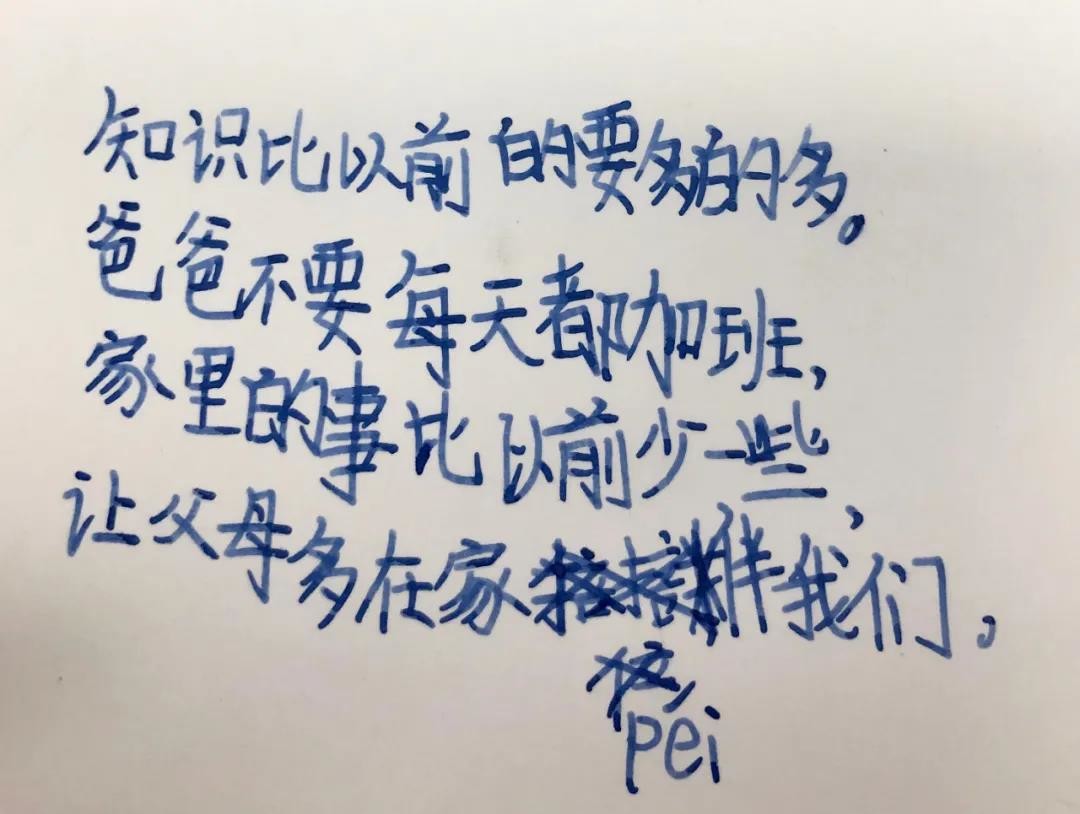 知识比以前的要多的多。
爸爸不要每天都加班,
家里的事比以前少一些,
让父母多在家伴我们,
pei